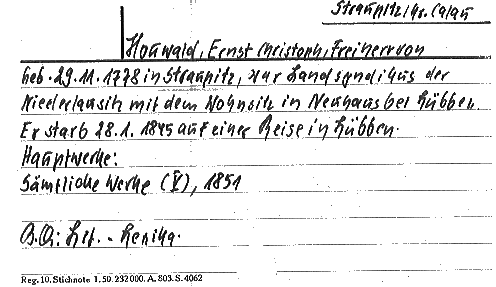 Straupitz/Kr. Calau
Houwald, Ernst Christoph, Freiherr von
geb. 29.11.1778 in Straupitz, war Landsyndikus der
Niederlausitz mit dem Wohnsitz in Neuhaus bei Lübben.
Er starb 28.1.1845 auf einer Reise in Lübben.
Hauptwerke:
Sämtliche Werke (V), 1851
B.Qu: Lit.-
Reg. 10. Stichnote 1. 50. 232 000. A. 803. S. 4062